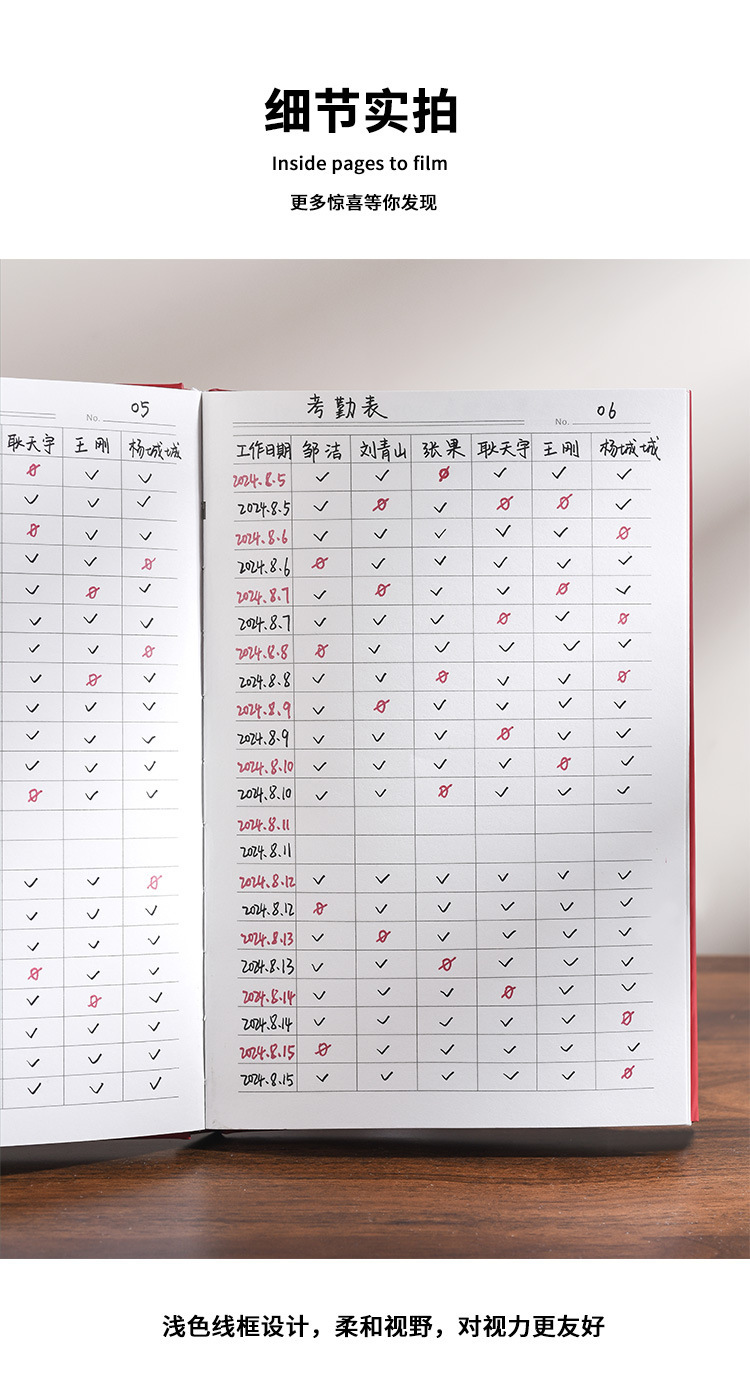 细节实拍
Inside pages to film
更多惊喜等你发现
No. 05
耿天宇 王刚 杨城城
考勤表
No. 06
工作日期 邹洁 刘青山 张果 耿天宇 王刚 杨城城
2024.8.5
2024.8.5
2024.8.6
2024.8.6
2024.8.7
2024.8.7
2024.8.8
2024.8.8
2024.8.9
2024.8.9
2024.8.10
2024.8.10
2024.8.11
2024.8.11
2024.8.12
2024.8.12
2024.8.13
2024.8.13
2024.8.14
2024.8.14
2024.8.15
2024.8.15
浅色线框设计，柔和视野，对视力更友好